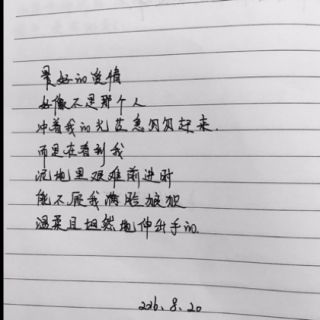 最好的爱情
好像不是那个人
冲着我的光芒急匆匆赶来.
而是在看到我
泥地里艰难前进时
能不厌我满脸狼狈
温柔且坦然地伸出手的.
2016.8.20